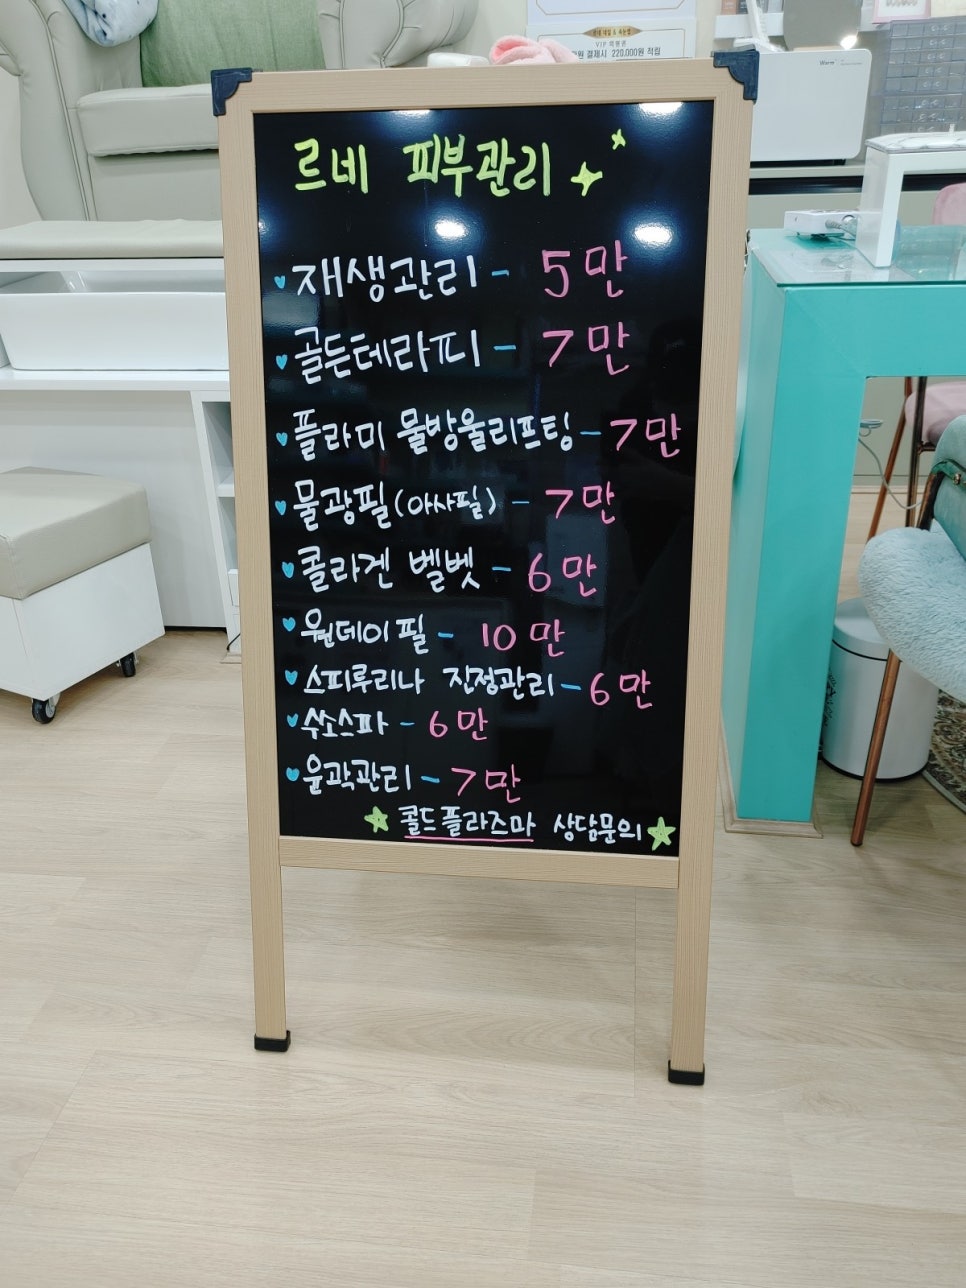 르네 네일 & 속눈썹
VIP 회원권
결제시 220,000원 적립
Warm
르네 피부관리
재생관리 - 5만
골든테라피 - 7만
플라미 물방울리프팅 - 7만
물광필(아사필) - 7만
콜라겐 벨벳 - 6만
원데이필 - 10만
스피루리나 진정관리 - 6만
산소스파 - 6만
윤곽관리 - 7만
콜드플라즈마 상담문의